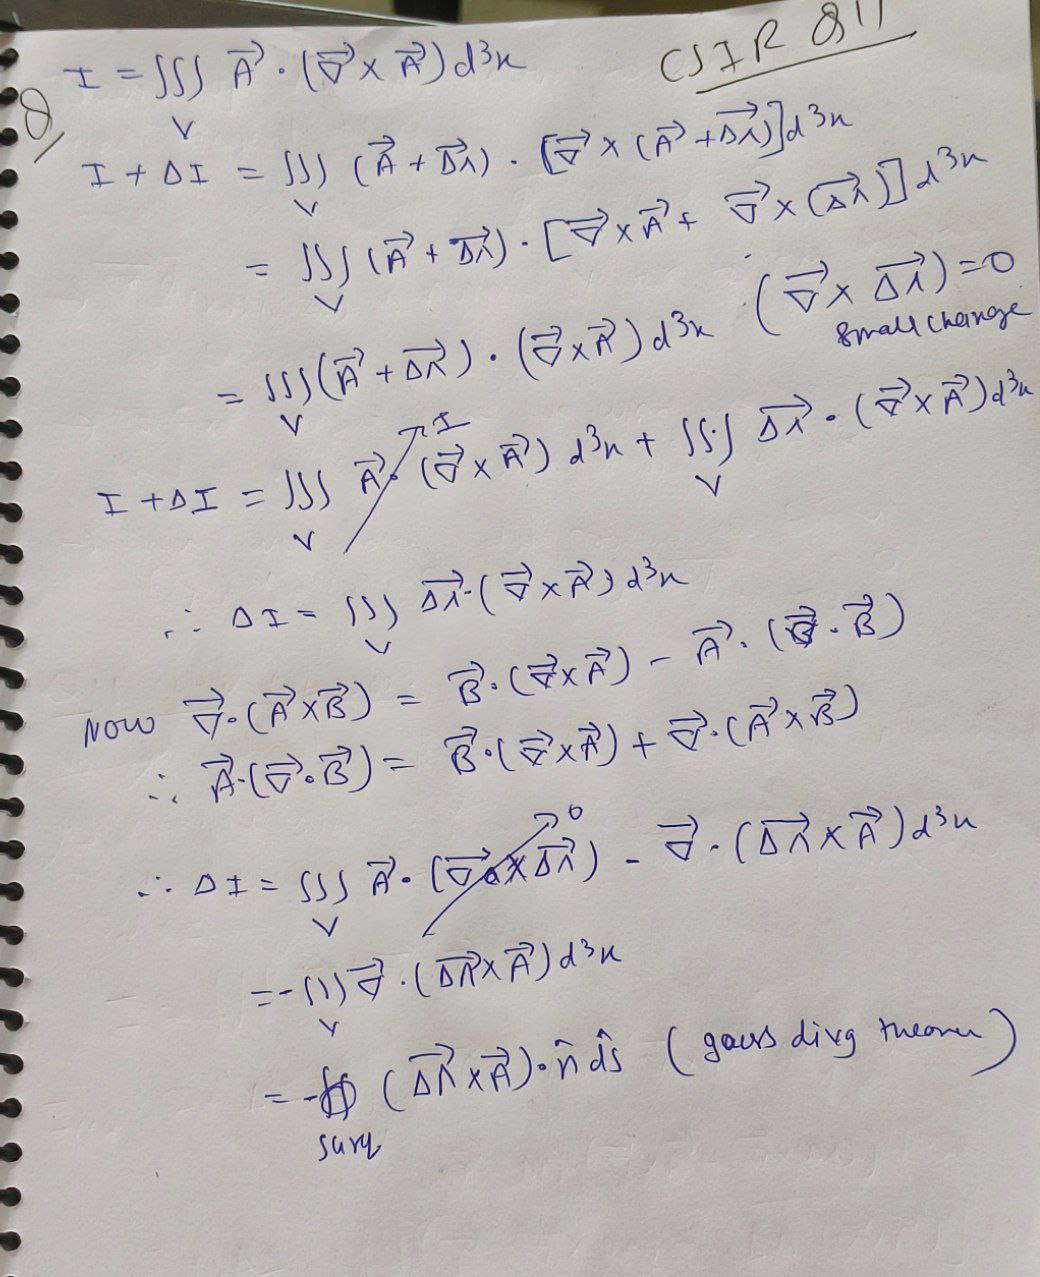 CSIR Q11
Q, I = ∭_V A⃗ · (∇⃗ × A⃗) d³x
I + ΔI = ∭_V (A⃗ + Δ⃗λ) · [∇⃗ × (A⃗ + Δ⃗λ)] d³x
= ∭_V (A⃗ + Δ⃗λ) · [∇⃗ × A⃗ + ∇⃗ × (Δ⃗λ)] d³x
(∇⃗ × Δ⃗λ) = 0
small change
= ∭_V (A⃗ + Δ⃗λ) · (∇⃗ × A⃗) d³x
I + ΔI = ∭_V A⃗ · (∇⃗ × A⃗) d³x → I + ∭_V Δ⃗λ · (∇⃗ × A⃗) d³x
∴ ΔI = ∭_V Δ⃗λ · (∇⃗ × A⃗) d³x
NOW ∇⃗ · (A⃗ × B⃗) = B⃗ · (∇⃗ × A⃗) − A⃗ · (∇⃗ · B⃗)
∴ A⃗ · (∇⃗ · B⃗) = B⃗ · (∇⃗ × A⃗) + ∇⃗ · (A⃗ × B⃗)
∴ ΔI = ∭_V A⃗ · (∇⃗ × Δ⃗λ) → 0 − ∇⃗ · (Δ⃗λ × A⃗) d³x
= − ∭_V ∇⃗ · (Δ⃗λ × A⃗) d³x
= − ∯ (Δ⃗λ × A⃗) · n̂ dŝ (gauss divg theorem)
surf